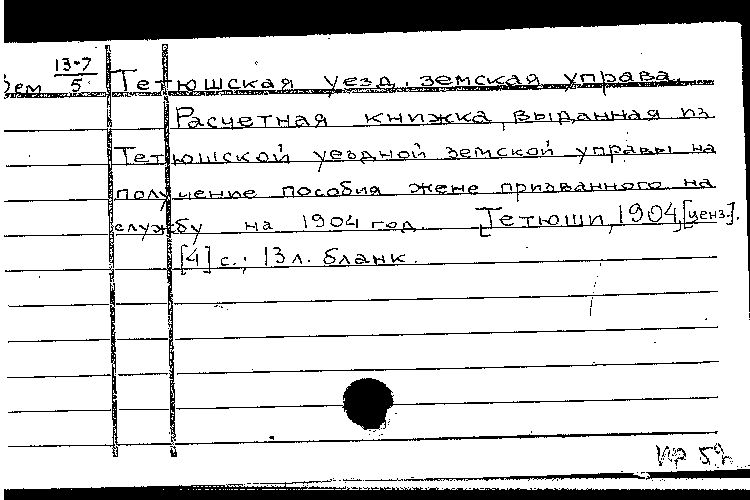 Зем 13-7/5 Тетюшская уезд. земская управа.
Расчетная книжка, выданная из
Тетюшской уездной земской управы на
получение пособия жене призванного на
службу на 1904 год. [Тетюши, 1904], [ценз.].
[4] с.; 13 л. бланк.